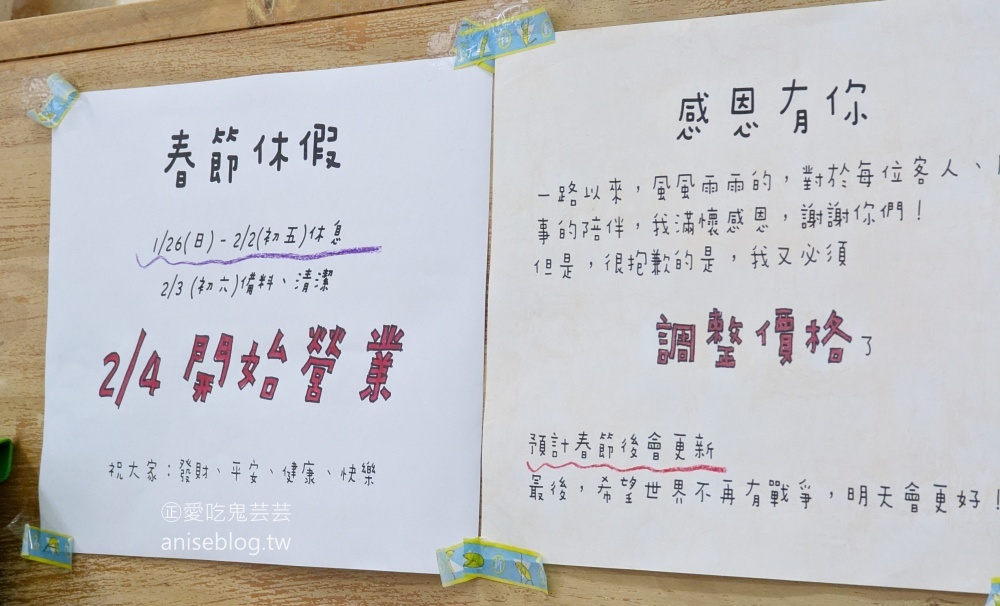 春節休假
1/26(日) - 2/2(初五)休息
2/3 (初六)備料、清潔
2/4 開始營業
祝大家：發財、平安、健康、快樂
㊣愛吃鬼芸芸
aniseblog.tw
感恩有你
一路以來，風風雨雨的，對於每位客人、
事的陪伴，我滿懷感恩，謝謝你們！
但是，很抱歉的是，我又必須
調整價格了
預計春節後會更新
最後，希望世界不再有戰爭，明天會更好！